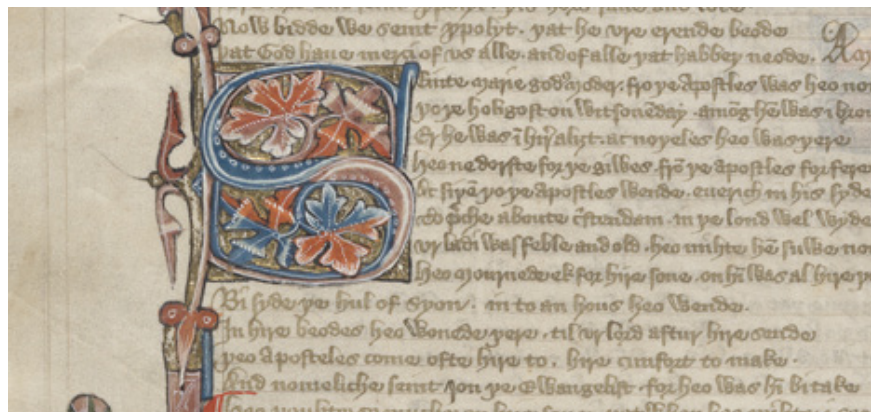 Now bidde we seint ypolyt · þat he vre erende beode
þat God haue merci of vs alle · and of alle þat habbeþ neode ·
Seinte marie godꝰ moder · fro þe Apostles was heo
þo þe holigost on witsoneday · amōg hē was i
Er he was ī hir aliȝt · ac noþeles heo was þere
heo ne dorste for þe giwes · frō þe apostles for fere
Ac siþē þo þe apostles wende · euerich in his syde
To p̄che aboute c̄stendam · in þe lond wel wyde
vr ladi was feble and old · heo mihte hē suwe
Heo mournede ek for hire sone · on hī was al hire
Bi syde þe hul of syon · in to an hous heo wende ·
In hire beodes heo wonede þere · til vr lord aftur hire sende
þeo Aposteles come ofte hire to · hire cumfort to make ·
And nomeliche seint Jon þe Ewangelist · for heo was hī bi take